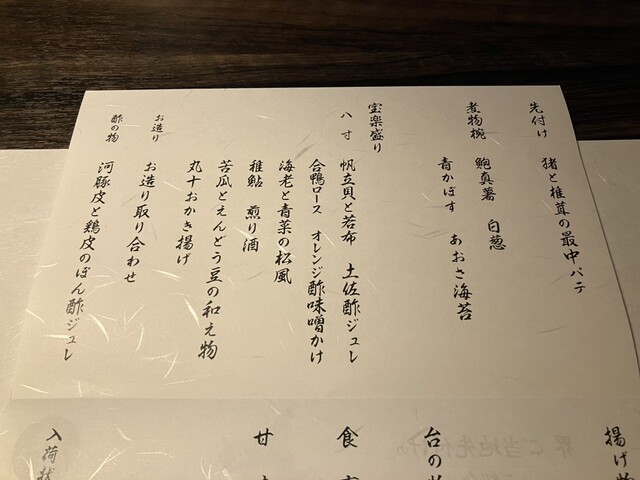 先付け
猪と椎茸の最中パテ
煮物椀
鮑真薯 白葱
青かぼす あおさ海苔
宝楽盛り
八寸
帆立貝と若布 土佐酢ジュレ
合鴨ロース オレンジ酢味噌かけ
海老と青菜の松風
稚鮎 煎り酒
苦瓜とえんどう豆の和え物
丸十おかき揚げ
お造り
お造り取り合わせ
酢の物
河豚皮と鶏皮のぽん酢ジュレ
揚げ物
台の物
食
甘
入荷状